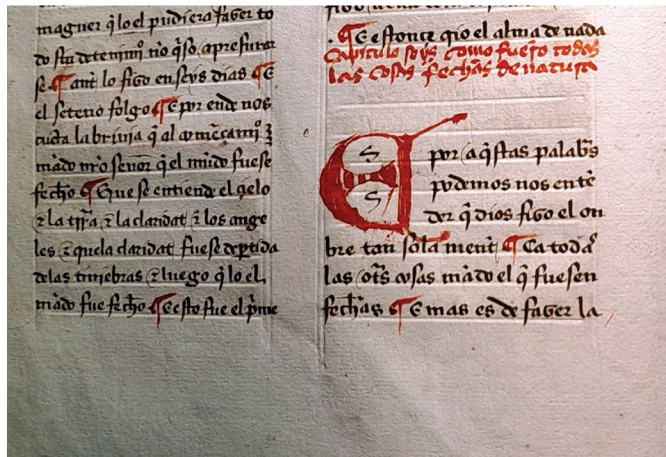 maguer q̃ lo el pudiera fazer to
do sin detenimiº nõ q̃so apresurar
se ¶ ant̃ lo fizo en seys dias ¶ E
el seteno folgo ¶ E por ende nos
cuẽta la brivia q̃ al comẽçamiº
mãdo nr̃o señor q̃ el mũdo fuese
fecħo ¶ Que se entiende el çielo
⁊ la trr̃a ⁊ la claridat ⁊ los ange
les ⁊ quela claridat fuese deptida
delas tiniebras ⁊ luego q̃ lo el
mãdo fue fecħo ¶ E esto fue el p̃me
¶ E estonçe crio el alma de nada
Capitulo seys como fuerõ todas
las cosas fechas de natura
E por aq̃stas palabr̃s
podemos nos entẽ
der q̃ dios fizo el on
bre tan sola ment̃ ¶ Ca todas
las otr̃s cosas mãdo el q̃ fuesen
fecħas ¶ E mas es de fazer la